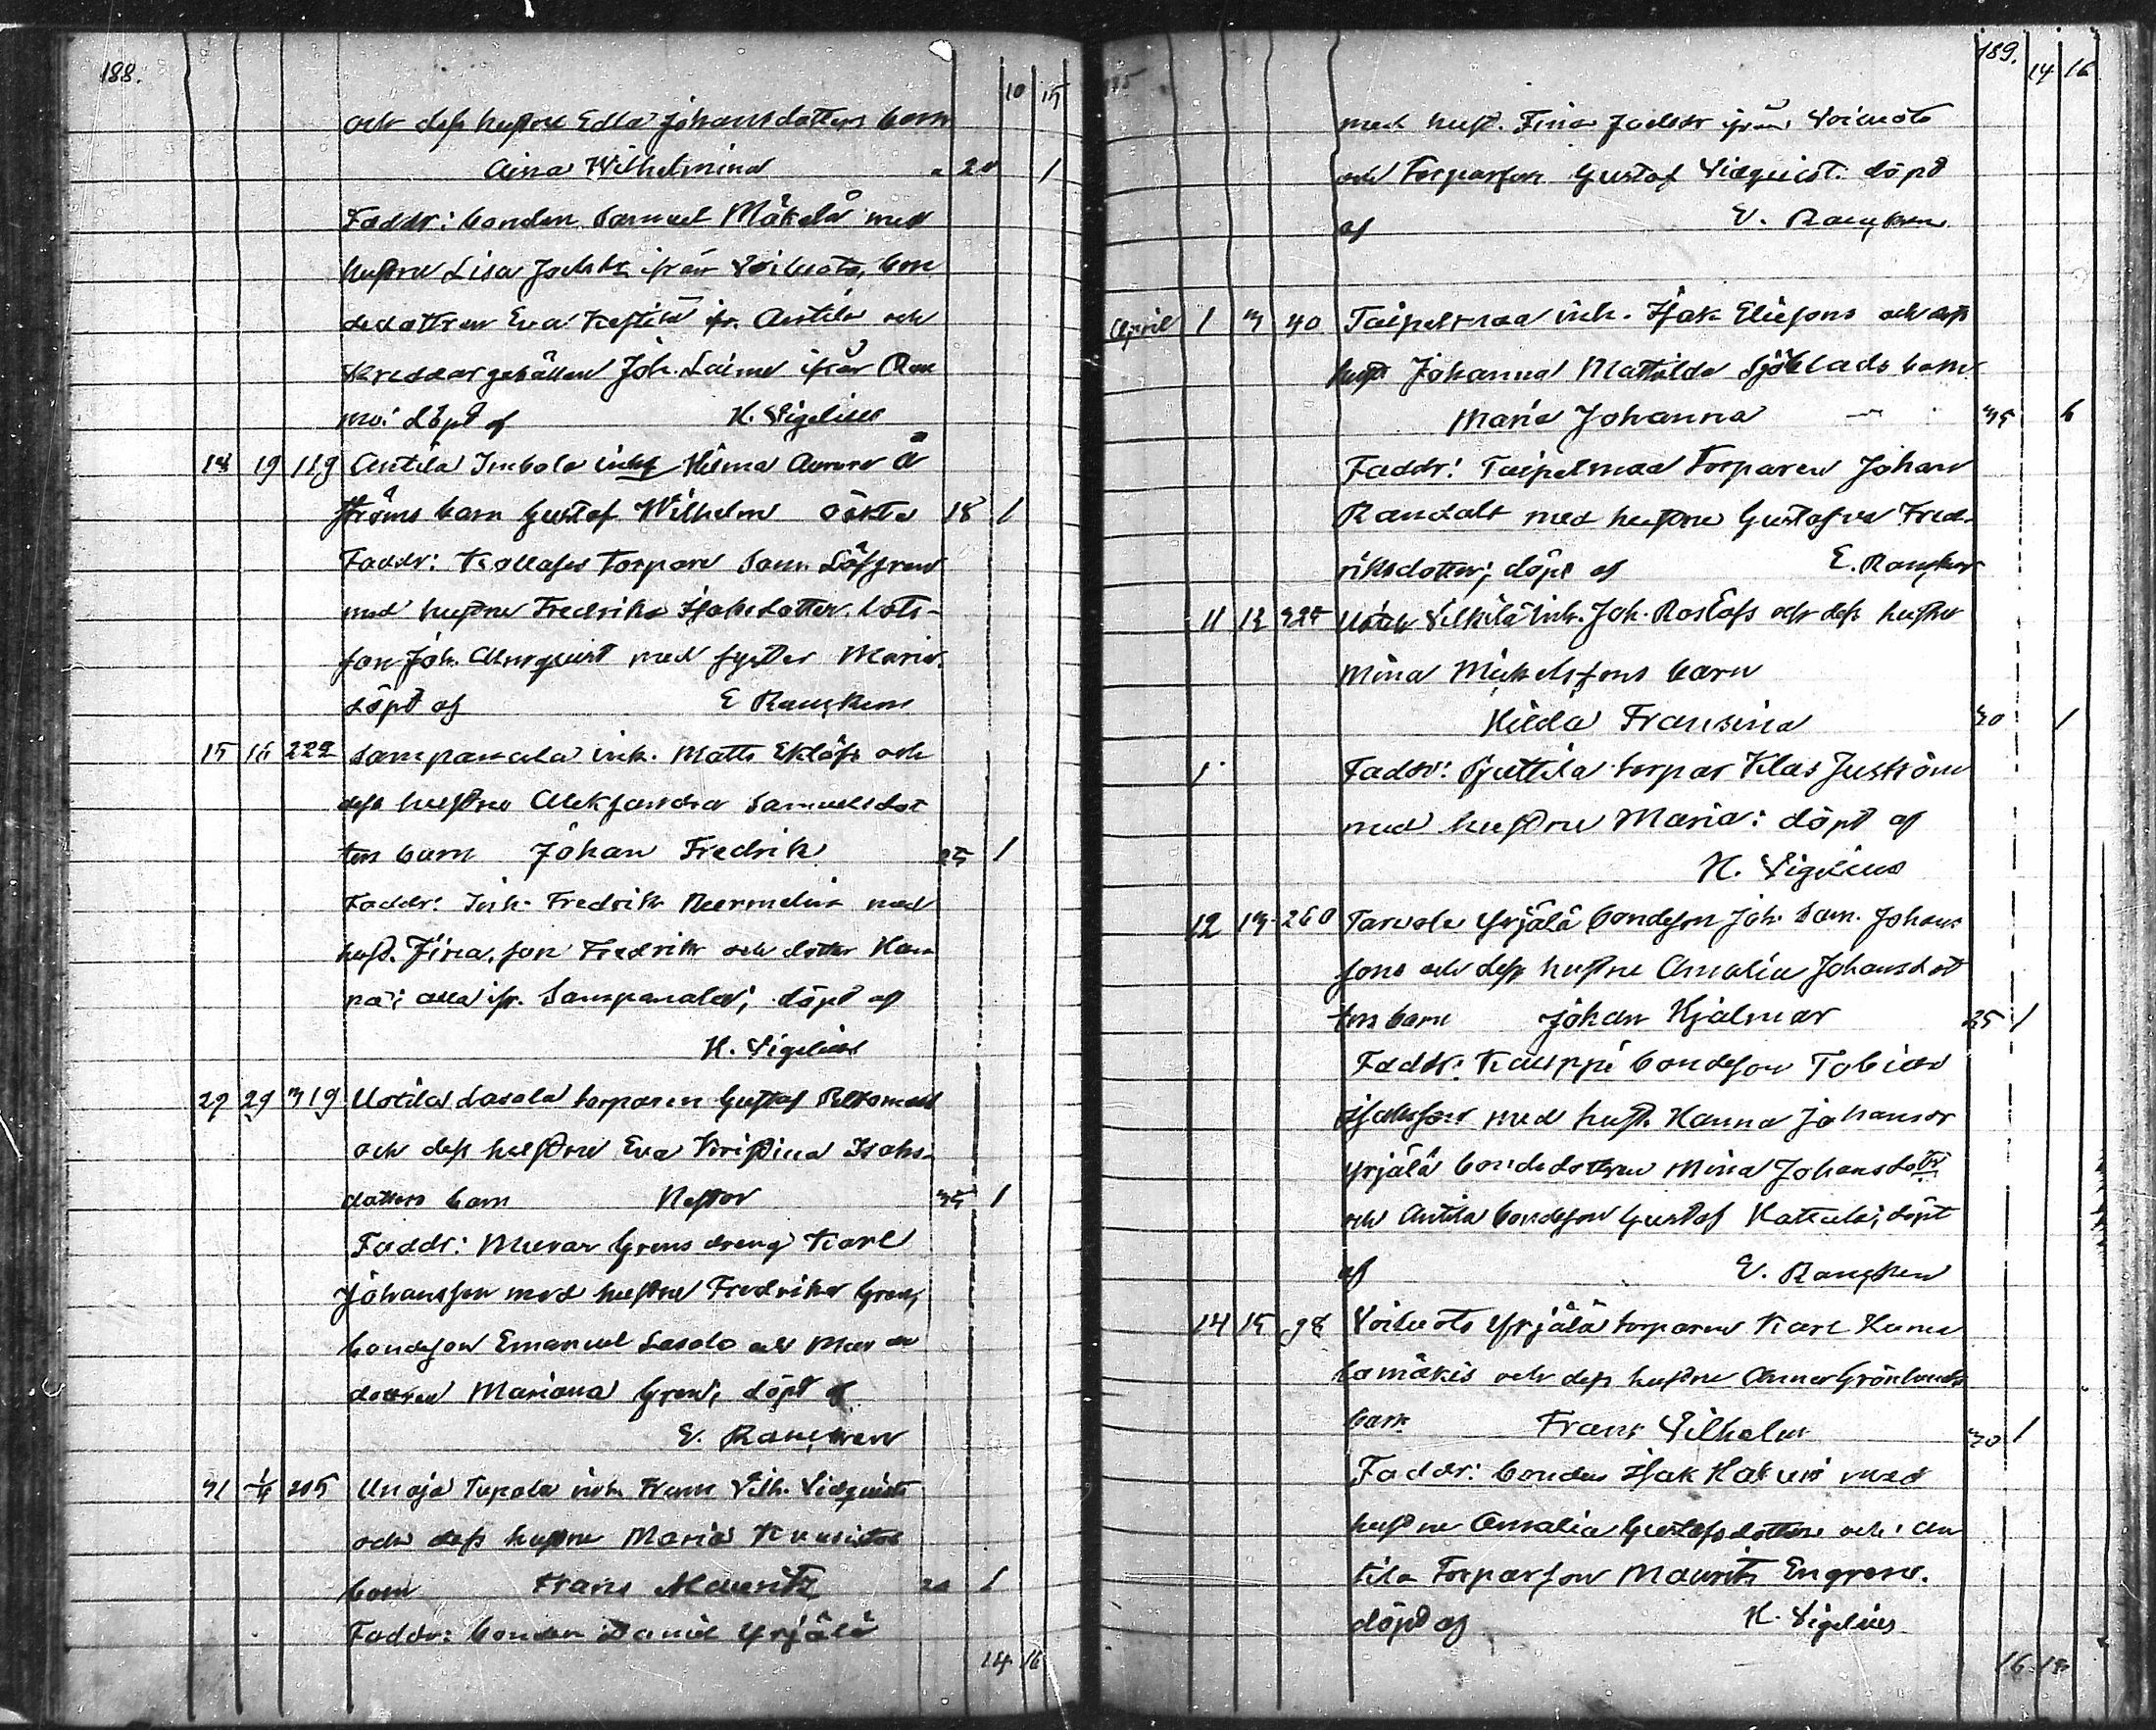 188.
10 15
och dess hustru Edla Johansdotters barn
Aina Wilhelmina 20 1
Faddr: bonden Samuel Mäkelä med
hustru Lisa ifrån Voiluoto, bon
dedottren Eva ifr. Antila och
skreddargesällen Joh. Laine ifrån Rau
mo: döpt af K. Vigelius
18 19 119 Antila Inkala Hilma Aurora Å
ströms barn Gustaf Wilhelm oäkta 18 1
Faddr: Kollaforpare Sam. Löfgren
med hustru Fredrika Isaksdotter. Lots-
son Joh. Almquist med syster Maria.
döpt af E Rancken
15 16 222 Sampanala inh. Matts Eklöfs och
dess hustru Aleksandra Samuelsdot
ters barn Johan Fredrik 25 1
Faddr: Inh. Fredrik med
hust. Fina, son Fredrik och dotter Han
na; alla ifr. Sampanala; döpt af
K. Vigelius
29 29 319 Uotila Lasola torparen Gustaf
och dess hustru Eva Kristina Isaks-
dotters barn Nestor 35 1
Faddr: Murar Gröns dreng Karl
Johansson med hustru Fredrika Grön,
bondeson Emanuel Lasola och Murar
dottren Mariana Grön; döpt af
E. Rancken
31 1/4 205 Unaja Tupala inh. Frans Vilh. Vidqvists
och dess hustru Maria
barn Frans Mauritz 20 1
Faddr: bonden Daniel Yrjälä
14 16
189.
14 16
med hust. Fina ifrån Voiluoto
och Torparson Gustaf Vidquist. döpt
af E. Rancken
April 1 3 40 Taipelmaa inh. Isak Eliesons och dess
hust Johanna Matilda Sjöblads barn
Maria Johanna 35 6
Faddr: Taipelmaa Torparen Johan
Randalt med hustru Gustafva Fred-
riksdotter; döpt af E. Rancken
11 12 Vilkilä inh. Joh. Roslöfs och dess hustru
Mina Mickelssons barn
Hilda Fransina 30 1
1 Faddr: torpar Klas Juström
med hustru Maria: döpt af
K. Vigelius
12 13 260 Tarvola Yrjälä bondeson Joh. Sam. Johans
sons och dess hustru Amalia Johansdot
ters barn Johan Hjalmar 25 1
Faddr: Kauppi bondeson Tobias
Isaksson med hust. Hanna Johansdr
Yrjälä bondedottren Mina Johansdottr
och Antila bondeson Gustaf Kattelus; döpt
af E. Rancken
14 15 98 Voiluoto Yrjälä torparen Karl
lamäkis och dess hustru Anna Grönlunds
barn Frans Vilhelm 30 1
Faddr: bonden Isak Hakuri med
hustru Amalia Gustafsdotter och: An
tila Torparson Maurits Engren.
döpt af K. Vigelius
16 18